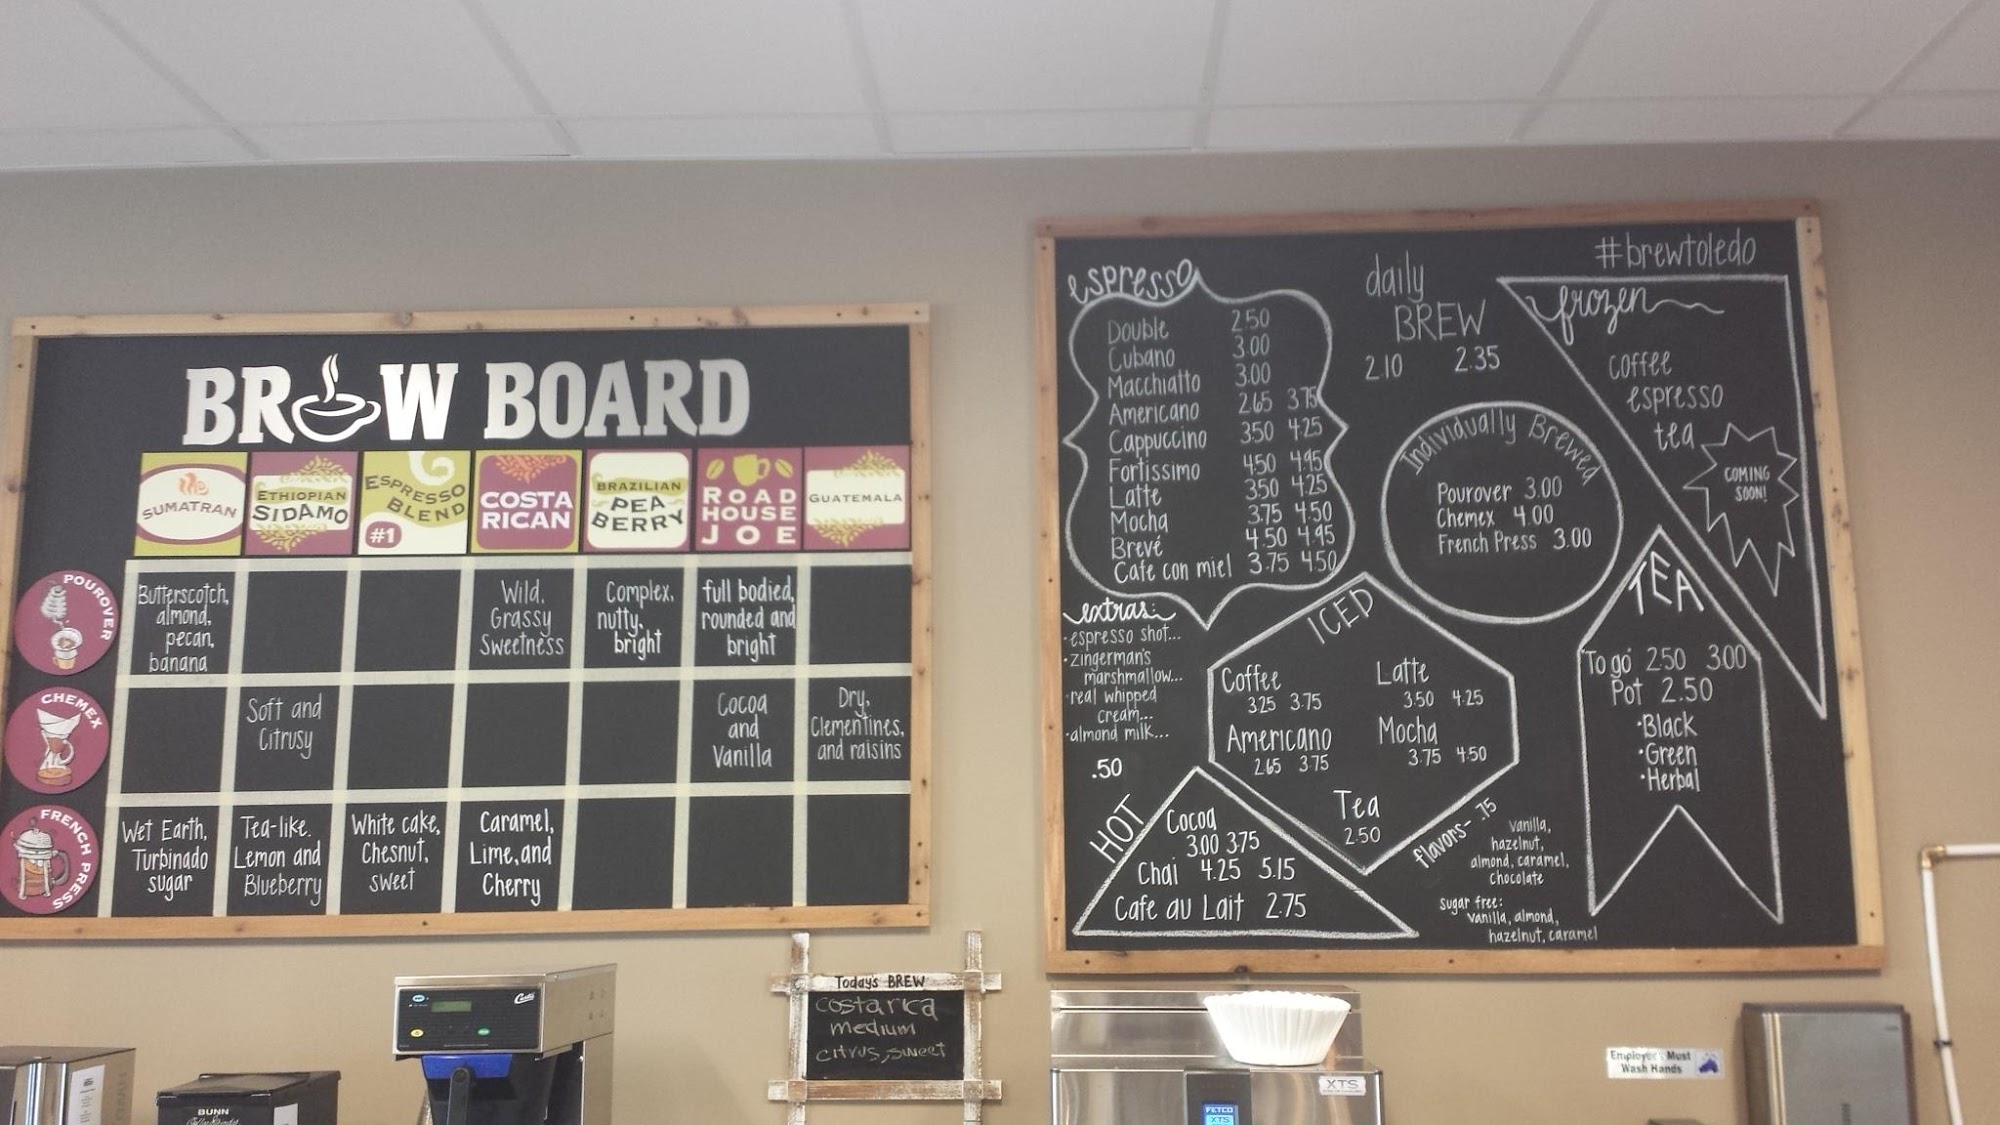 BREW BOARD
the SUMATRAN
ETHIOPIAN
SIDAMO
ESPRESSO
BLEND
#1
COSTA
RICAN
BRAZILIAN
PEA
BERRY
ROAD
HOUSE
JOE
GUATEMALA
POUROVER
Butterscotch,
almond,
pecan,
banana
Wild,
Grassy
Sweetness
Complex,
nutty,
bright
full bodied,
rounded and
bright
CHEMEX
Soft and
Citrusy
Cocoa
and
Vanilla
Dry,
Clementines,
and raisins
FRENCH PRESS
Wet Earth,
Turbinado
sugar
Tea-like.
Lemon and
Blueberry
White cake,
Chesnut,
sweet
Caramel,
Lime, and
Cherry
#brewtoledo
espresso
Double 2.50
Cubano 3.00
Macchiatto 3.00
Americano 2.65 3.75
Cappuccino 3.50 4.25
Fortissimo 4.50 4.95
Latte 3.50 4.25
Mocha 3.75 4.50
Brevé 4.50 4.95
Cafe con miel 3.75 4.50
extras:
• espresso shot...
• zingerman's
marshmallow...
• real whipped
cream...
• almond milk...
.50
daily
BREW
2.10 2.35
Individually Brewed
Pourover 3.00
Chemex 4.00
French Press 3.00
frozen
coffee
espresso
tea
COMING
SOON!
ICED
Coffee
3.25 3.75
Latte
3.50 4.25
Americano
2.65 3.75
Mocha
3.75 4.50
Tea
2.50
HOT
Cocoa
3.00 3.75
Chai 4.25 5.15
Cafe au Lait 2.75
flavors- .75
vanilla,
hazelnut,
almond, caramel,
chocolate
sugar free:
vanilla, almond,
hazelnut, caramel
TEA
To go 2.50 3.00
Pot 2.50
•Black
•Green
•Herbal
Today's BREW
costa rica
medium
citrus, sweet
Curtis
BUNN
XTS
FETCO
XTS
Employees Must
Wash Hands